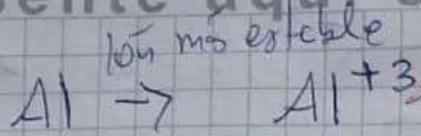 ión mś estcble
Al → Al⁺³